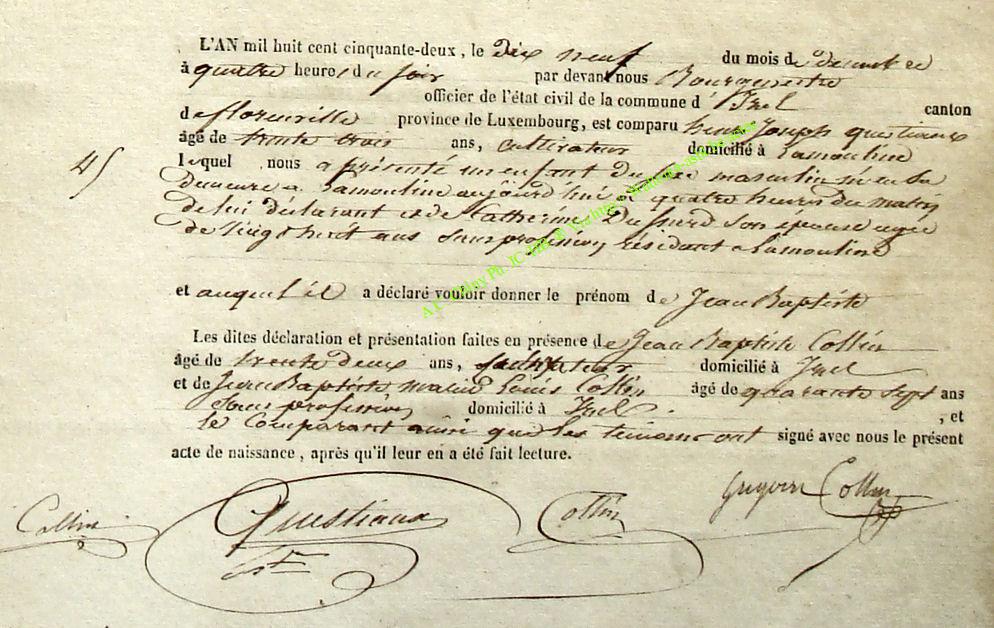 L'AN mil huit cent cinquante-deux, le dix neuf du mois de décembre
à quatre heures du soir par devant nous Bourgmestre
officier de l'état civil de la commune d' Izel canton
de florenville province de Luxembourg, est comparu henri Joseph questiaux
âgé de trente trois ans, cultivateur domicilié à Lamouline
45 lequel nous a présenté un enfant du sexe masculin né en sa
demeure a Lamouline aujourd'hui a quatre heures du matin
de lui déclarant et de Catherine son épouse agée
de vingt huit ans sans profession résidant a Lamouline
et auquel il a déclaré vouloir donner le prénom de Jean Baptiste
Les dites déclaration et présentation faites en présence de Jean Baptiste Collin
âgé de trente deux ans, domicilié à Izel
et de Jean Baptiste Louis Collin âgé de quarante sept ans
sans profession domicilié à Izel . , et
le Comparant ainsi que les temoins ont signé avec nous le présent
acte de naissance, après qu'il leur en a été fait lecture.
Collin Questiaux Collin Collin